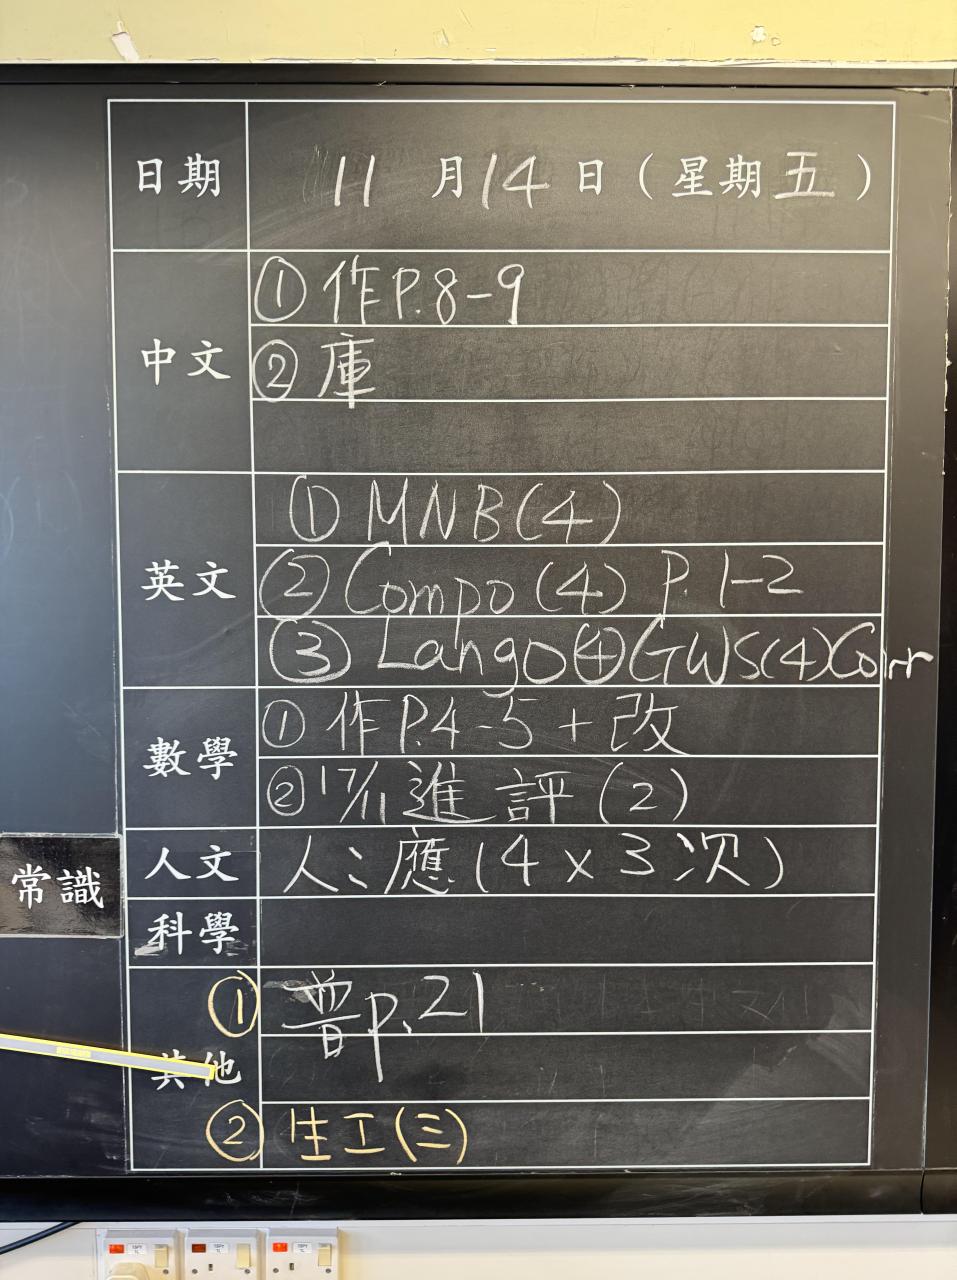 日期 11月14日(星期五)
中文 ①作P.8-9
②庫
英文 ①MNB(4)
②Compo(4) P.1-2
③Lango④GWS(4)Corr
數學 ①作P.4-5+改
②17/11進評(2)
人文 人:應(4x3次)
常識
科學
其他 ①普p.21
②生工(三)